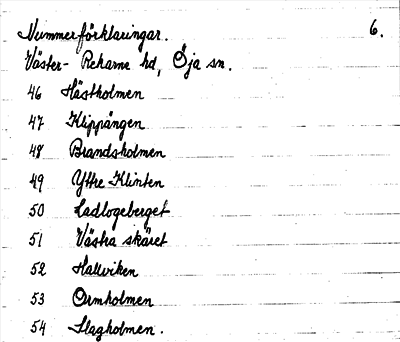 Nummerförklaringar. 6.
Väster- Rekarne hd, Öja sn.
46 Hästholmen
47 Klippängen
48 Brandsholmen
49 Yttre Klinten
50 Ladlogeberget
51 Västra skäret
52 Hallviken
53 Ormholmen
54 Slagholmen.